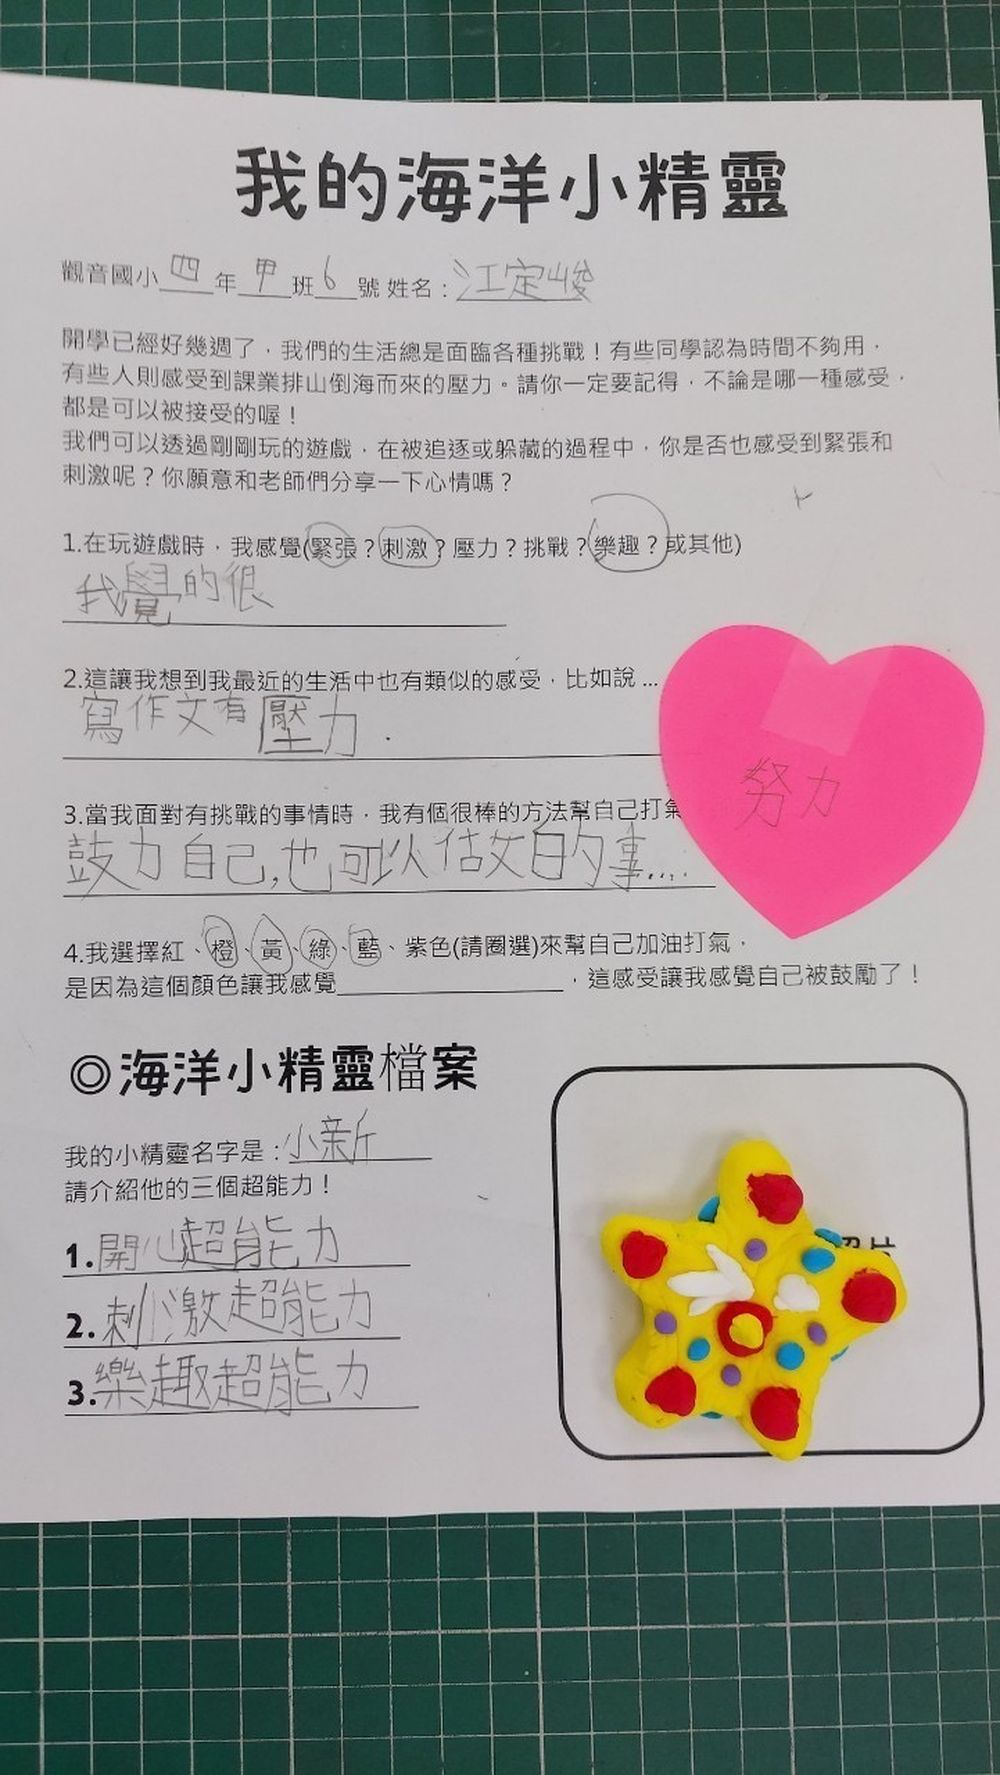 我的海洋小精靈
觀音國小四年甲班6號 姓名：江定峻
開學已經好幾週了，我們的生活總是面臨各種挑戰！有些同學認為時間不夠用，
有些人則感受到課業排山倒海而來的壓力。請你一定要記得，不論是哪一種感受，
都是可以被接受的喔！
我們可以透過剛剛玩的遊戲，在被追逐或躲藏的過程中，你是否也感受到緊張和
刺激呢？你願意和老師們分享一下心情嗎？
1.在玩遊戲時，我感覺(緊張？刺激？壓力？挑戰？樂趣？或其他)
我覺的很
2.這讓我想到我最近的生活中也有類似的感受，比如說...
寫作文有壓力.
3.當我面對有挑戰的事情時，我有個很棒的方法幫自己打氣
鼓力自己,也可以估文白的事....
努力
4.我選擇紅、橙、黃、綠、藍、紫色(請圈選)來幫自己加油打氣，
是因為這個顏色讓我感覺，這感受讓我感覺自己被鼓勵了！
◎海洋小精靈檔案
我的小精靈名字是：小新
請介紹他的三個超能力！
1.開心超能力
2.刺激超能力
3.樂趣超能力